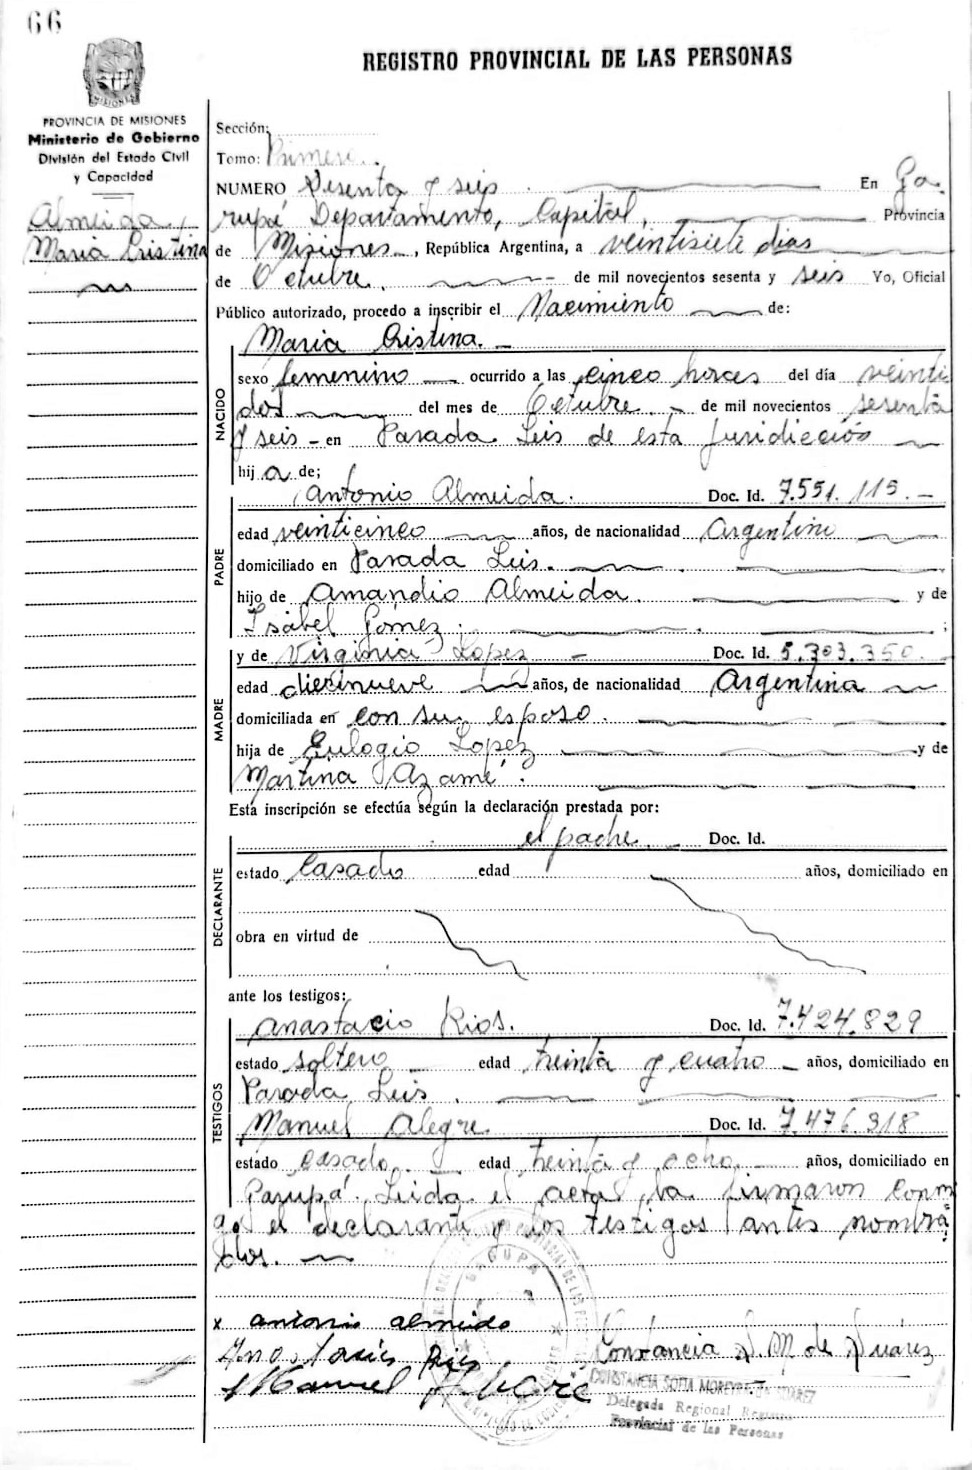 66
REGISTRO PROVINCIAL DE LAS PERSONAS
MISIONES
PROVINCIA DE MISIONES
Ministerio de Gobierno
División del Estado Civil
y Capacidad
Almeida,
Maria Cristina
Sección:
Tomo: Primero.
NUMERO Sesenta y seis En Ga
rupá Departamento, Capital, Provincia
de Misiones, República Argentina, a veintisiete dias
de Octubre, de mil novecientos sesenta y seis Yo, Oficial
Público autorizado, procedo a inscribir el Nacimiento de:
NACIDO
Maria Cristina.
sexo femenino ocurrido a las cinco horas del día veinti
dos del mes de Octubre de mil novecientos sesenta
y seis - en Parada Leis de esta Jurisdicción
hij a de;
PADRE
Antonio Almeida. Doc. Id. 7.551.115.-
edad veinticinco años, de nacionalidad Argentino
domiciliado en Parada Leis.
hijo de Amandio Almeida. y de
Isabel Gomez. ;
MADRE
y de Virginia Lopez Doc. Id. 5.303.350.
edad diecinueve años, de nacionalidad Argentina
domiciliada en con su esposo.
hija de Eulogio Lopez y de
Martina Azamé.
Esta inscripción se efectúa según la declaración prestada por:
DECLARANTE
el padre. Doc. Id.
estado Casado edad años, domiciliado en
obra en virtud de
ante los testigos:
TESTIGOS
Anastacio Rios. Doc. Id. 7.424.829
estado soltero edad treinta y cuatro años, domiciliado en
Parada Leis.
Manuel Alegre Doc. Id. 7.476.318
estado casado. edad treinta y ocho años, domiciliado en
Garupá. Leida el acta, la firmaron conmi
go el declarante y los testigos antes nombra
dos.
x antonio almeida
Anastacio Rios
Manuel
Constancia S. M. de Suárez
CONSTANCIA SOFIA MOREYRA DE SUAREZ
Delegada Regional Registro
Provincial de las Personas
GARUPA